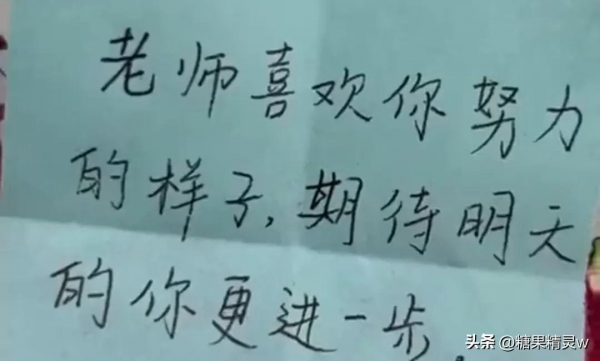 老师喜欢你努力
的样子,期待明天
的你更进一步.
头条 @糖果精灵w